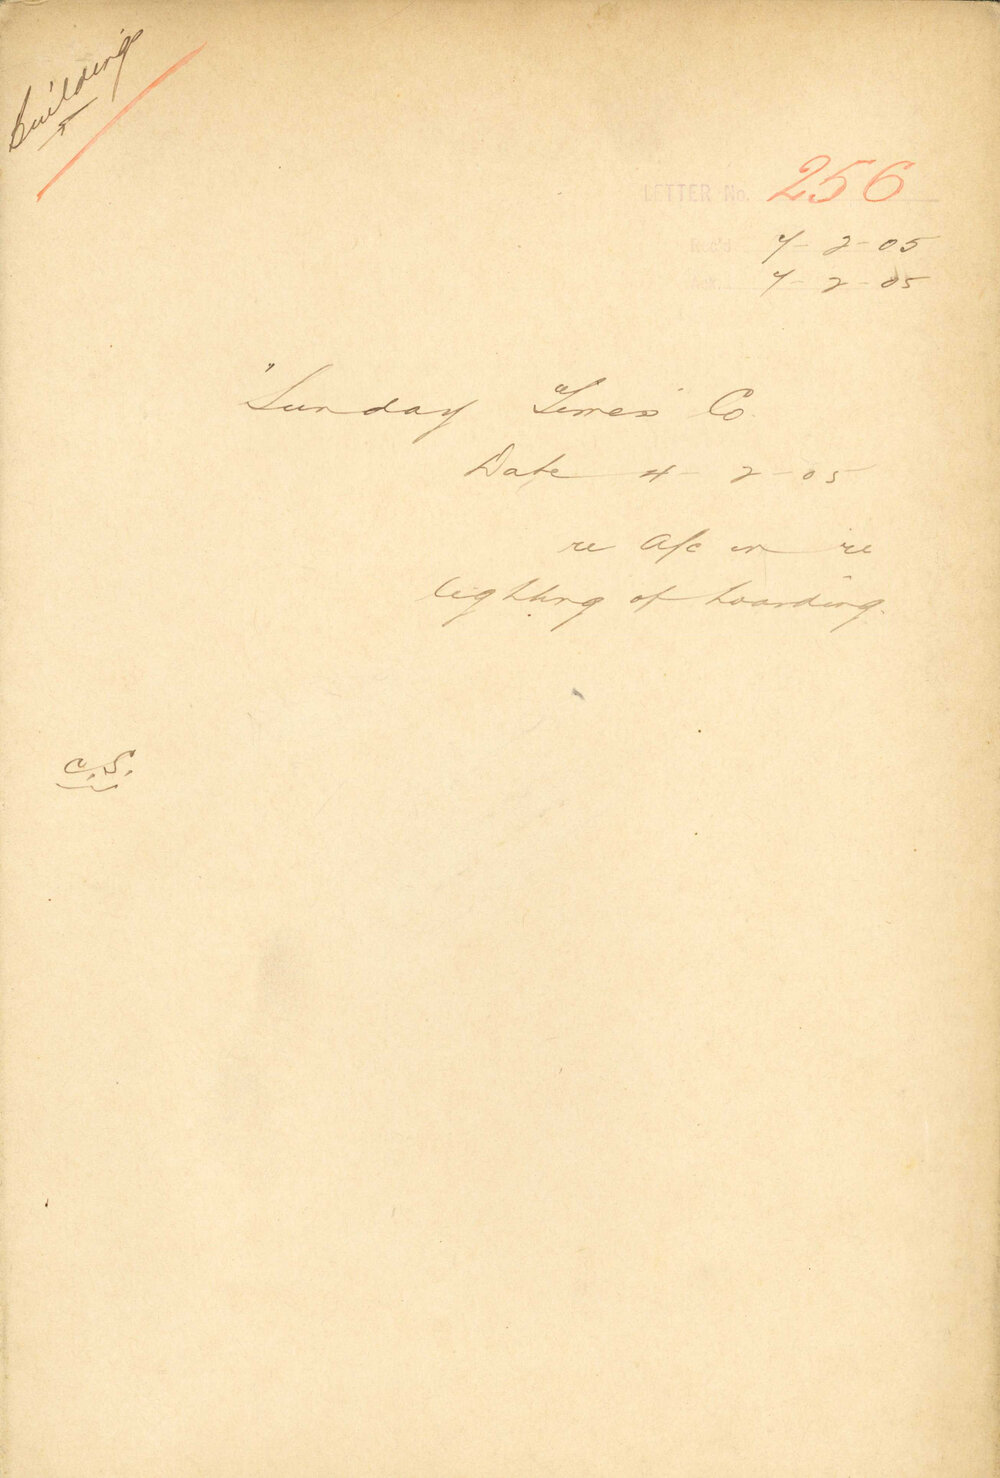 Buildings
LETTER No. 256
Rec'd 7-2-05
Ack. 7-2-05
"Sunday Times" Co.
Date 4-2-05
re A/c in re
lighting of hoarding.
C.S.